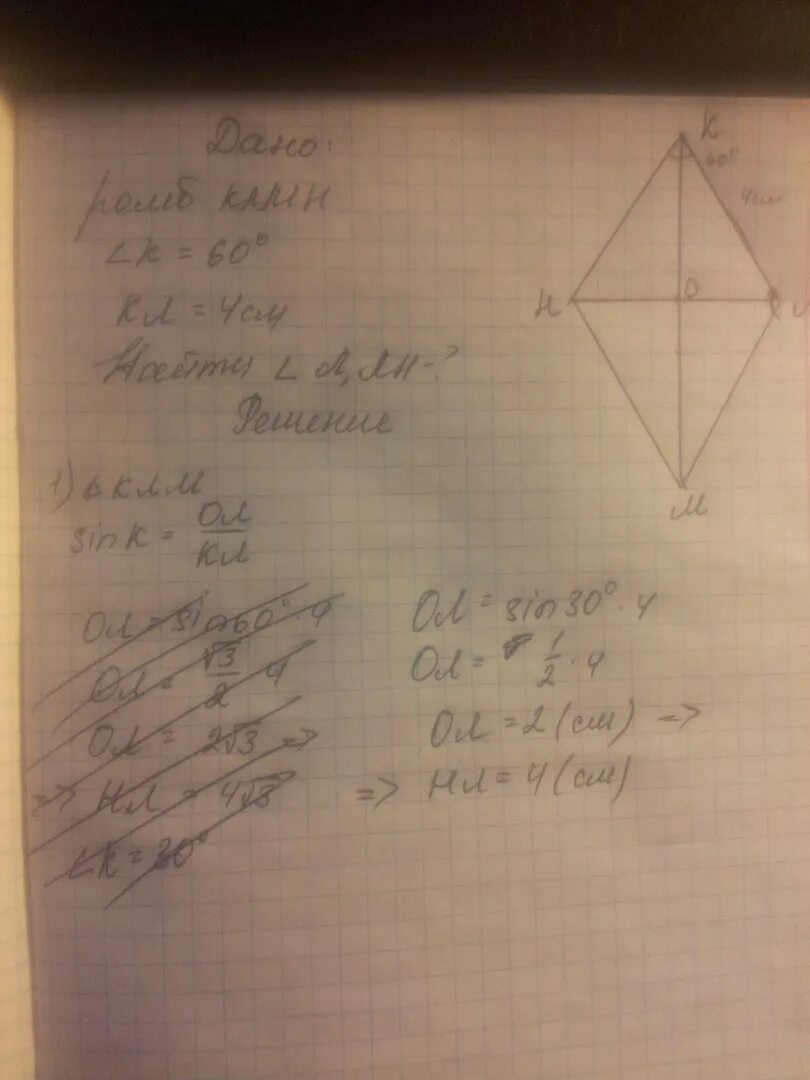 Дано:
ромб КЛМН
∠К = 60°
КЛ = 4см
Найти ∠Л, ЛН-?
Решение
1) Δ КЛМ
sinК = ОЛ/КЛ
ОЛ = sin60° · 4
ОЛ = √3/2 · 4
ОЛ = 2√3 =>
=> НЛ = 4√3
∠К = 30°
ОЛ = sin30° · 4
ОЛ = 1/2 · 4
ОЛ = 2 (см) =>
=> НЛ = 4 (см)
К
60°
4см
Н
О
М